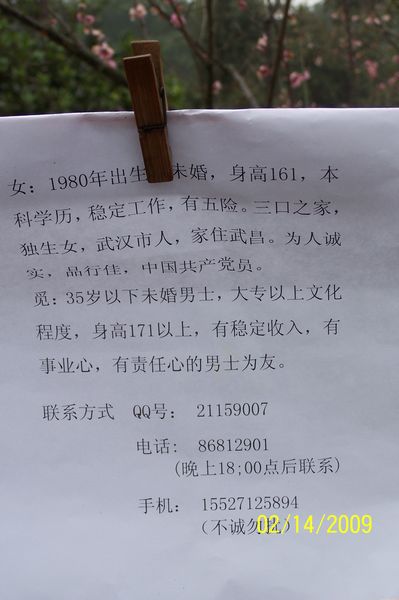 女：1980年出生 未婚，身高161，本
科学历，稳定工作，有五险。三口之家，
独生女，武汉市人，家住武昌。为人诚
实，品行佳，中国共产党员。
觅：35岁以下未婚男士，大专以上文化
程度，身高171以上，有稳定收入，有
事业心，有责任心的男士为友。
联系方式 QQ号： 21159007
电话： 86812901
(晚上18;00点后联系)
手机： 15527125894
（不诚勿扰）
02/14/2009